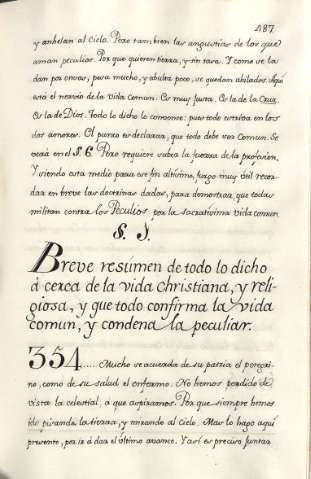 487
y anhelan al Cielo. Pero tambien las angustias de los que
aman peculiar. Por que quieren tierra, y sin tasa. Y como se la
dan por onzas, pesa mucho, y abulta poco, se quedan ahilados. Aqui
está el nervio de la vida comun. Es muy justa. Es la de la Cruz.
Es la de Dios. Todo lo dicho lo convence: pues todo estriva en los
dos amores. El punto es declarar, que todo debe ser comun. Se
verá en el §. 6. Pero requiere sabia la fuerza de la profesion,
Y siendo esta medio para ese fin altisimo, juzgo muy util recor-
dar en breve las doctrinas dadas, para demostrar, que todas
militan contra los Peculios, por la sacratisima vida comun.
§. I.
Breve resúmen de todo lo dicho
à cerca de la vida christiana, y reli-
giosa, y que todo confirma la vida
comun, y condena la peculiar.
354..... Mucho se acuerda de su patria el peregri-
no, como de su salud el enfermo. No hemos perdido de
vista la celestial, á que aspiramos. Por que siempre hemos
ido pisando la tierra, y mirando al Cielo. Mas lo hago aqui
presente, por ir á dar el último avance. Y asi es preciso juntar